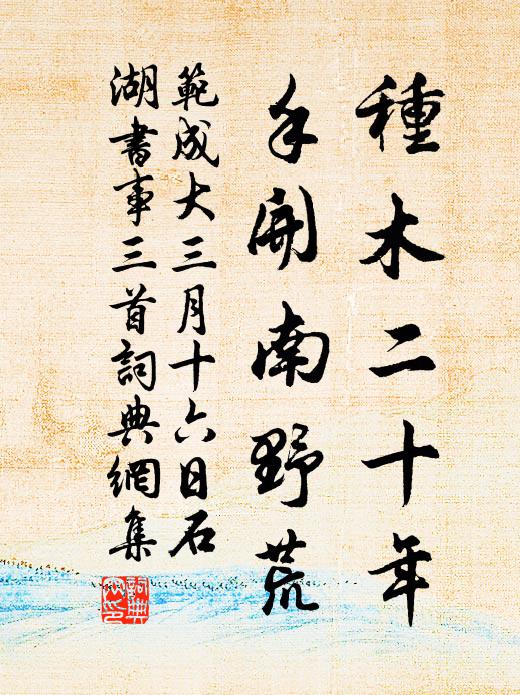 種木二十年
手開南野荒
範成大三月十六日石
湖書事三首詞典網集